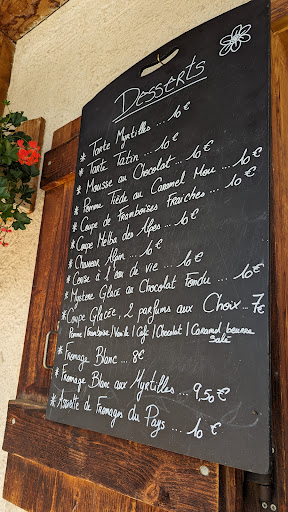 Desserts
* Tarte Myrtilles... 10€
* Tarte Tatin... 10€
* Mousse au Chocolat... 10€
* Pomme Tiède au Caramel Mou... 10€
* Coupe de Framboises Fraiches... 10€
* Coupe Melba des Alpes... 10€
* Chasseur Alpin... 10€
* Cerise à l'eau de vie... 10€
* Mystère Glacé au Chocolat Fondu... 10€
* Coupe Glacée, 2 parfums aux Choix... 7€
Pomme | Framboise | Vanille | Café | Chocolat | Caramel beurre
salé
* Fromage Blanc... 8€
* Fromage Blanc aux Myrtilles... 9,50€
* Assiette de Fromages du Pays... 10€